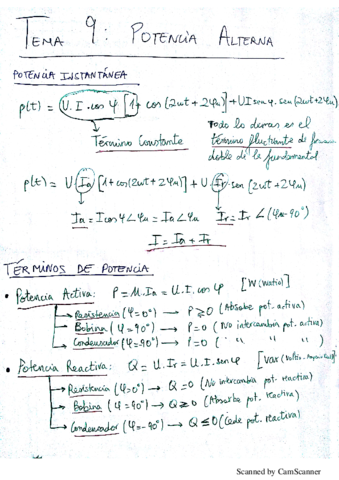 TEMA 9: POTENCIA ALTERNA
POTENCIA INSTANTÁNEA
p(t) = U.I.cos φ [1 + cos(2ωt + 2φu)] + UI sen φ. sen(2ωt+2φu)
Término Constante
Todo lo demás es el
término fluctuante de frecuencia
doble de la fundamental
p(t) = U Ia [1 + cos(2ωt + 2φu)] + U Ir sen(2ωt + 2φu)
Ia = I cos φ ∠φu = Ia ∠φu
Ir = Ir ∠(φu - 90°)
I = Ia + Ir
TÉRMINOS DE POTENCIA
• Potencia Activa: P = U.Ia = U.I.cos φ [W (Watio)]
→ Resistencia (φ = 0°) → P ≥ 0 (Absorbe pot. activa)
→ Bobina (φ = 90°) → P = 0 (No intercambia pot. activa)
→ Condensador (φ = -90°) → P = 0 ( " " " )
• Potencia Reactiva: Q = U.Ir = U.I.sen φ [Var (Voltio-Amperio React)]
→ Resistencia (φ = 0°) → Q = 0 (No intercambia pot. reactiva)
→ Bobina (φ = 90°) → Q ≥ 0 (Absorbe pot. reactiva)
→ Condensador (φ = -90°) → Q ≤ 0 (Cede pot. reactiva)
Scanned by CamScanner